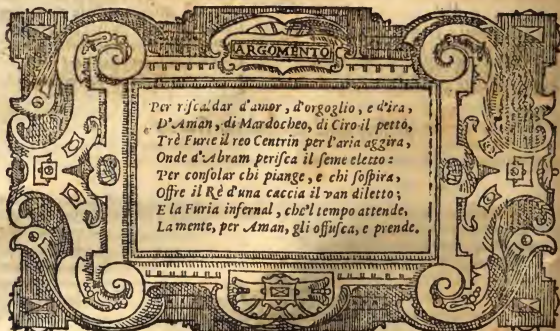 ARGOMENTO
Per riscaldar d'amor, d'orgoglio, e d'ira,
D'Aman, di Mardocheo, di Ciro il petto,
Trè Furie il reo Centrin per l'aria aggira,
Onde d'Abram perisca il seme eletto:
Per consolar chi piange, e chi sospira,
Offre il Rè d'una caccia il van diletto;
E la Furia infernal, che'l tempo attende,
La mente, per Aman, gli offusca, e prende.